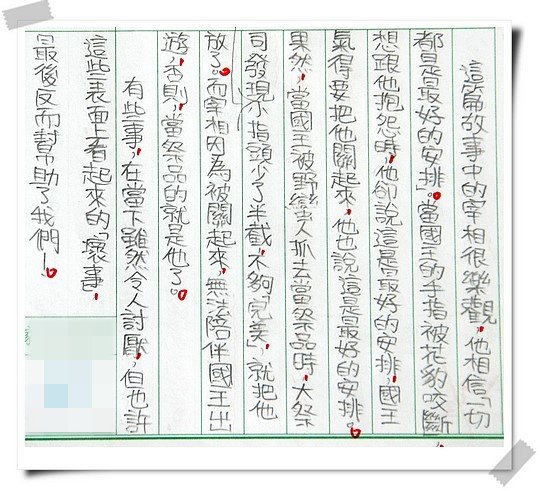 這篇故事中的宰相很樂觀，他相信一切
都是最好的安排。當國王的手指被花豹咬斷，
想跟他抱怨時，他卻說這是最好的安排，國王
氣得要把他關起來，他也說這是最好的安排。
果然，當國王被野蠻人抓去當祭品時，大祭
司發現小指頭少了半截，不夠「完美」，就把他
放了。而宰相因為被關起來，無法陪伴國王出
遊，否則，當祭品的就是他了。
有些事，在當下雖然令人討厭，但也許
這些表面上看起來的「壞事，
最後反而幫助了我們！。